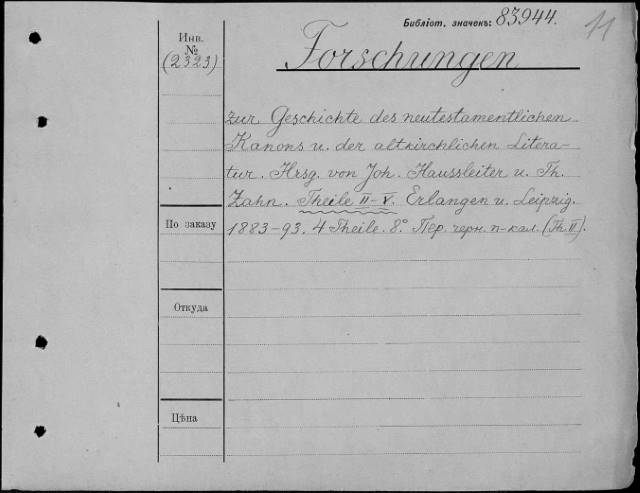 Библіот. значекъ: 83944.
11
Инв.
№
(2323)
Forschungen
zur Geschichte des neutestamentlichen
Kanons u. der altkirchlichen Litera-
tur. Hrsg. von Joh. Haussleiter u. Th.
Zahn. Theile II-V. Erlangen u. Leipzig.
1883-93. 4 Theile. 8.° Пер. черн. п-кал. (Th. II).
По заказу
Откуда
Цѣна